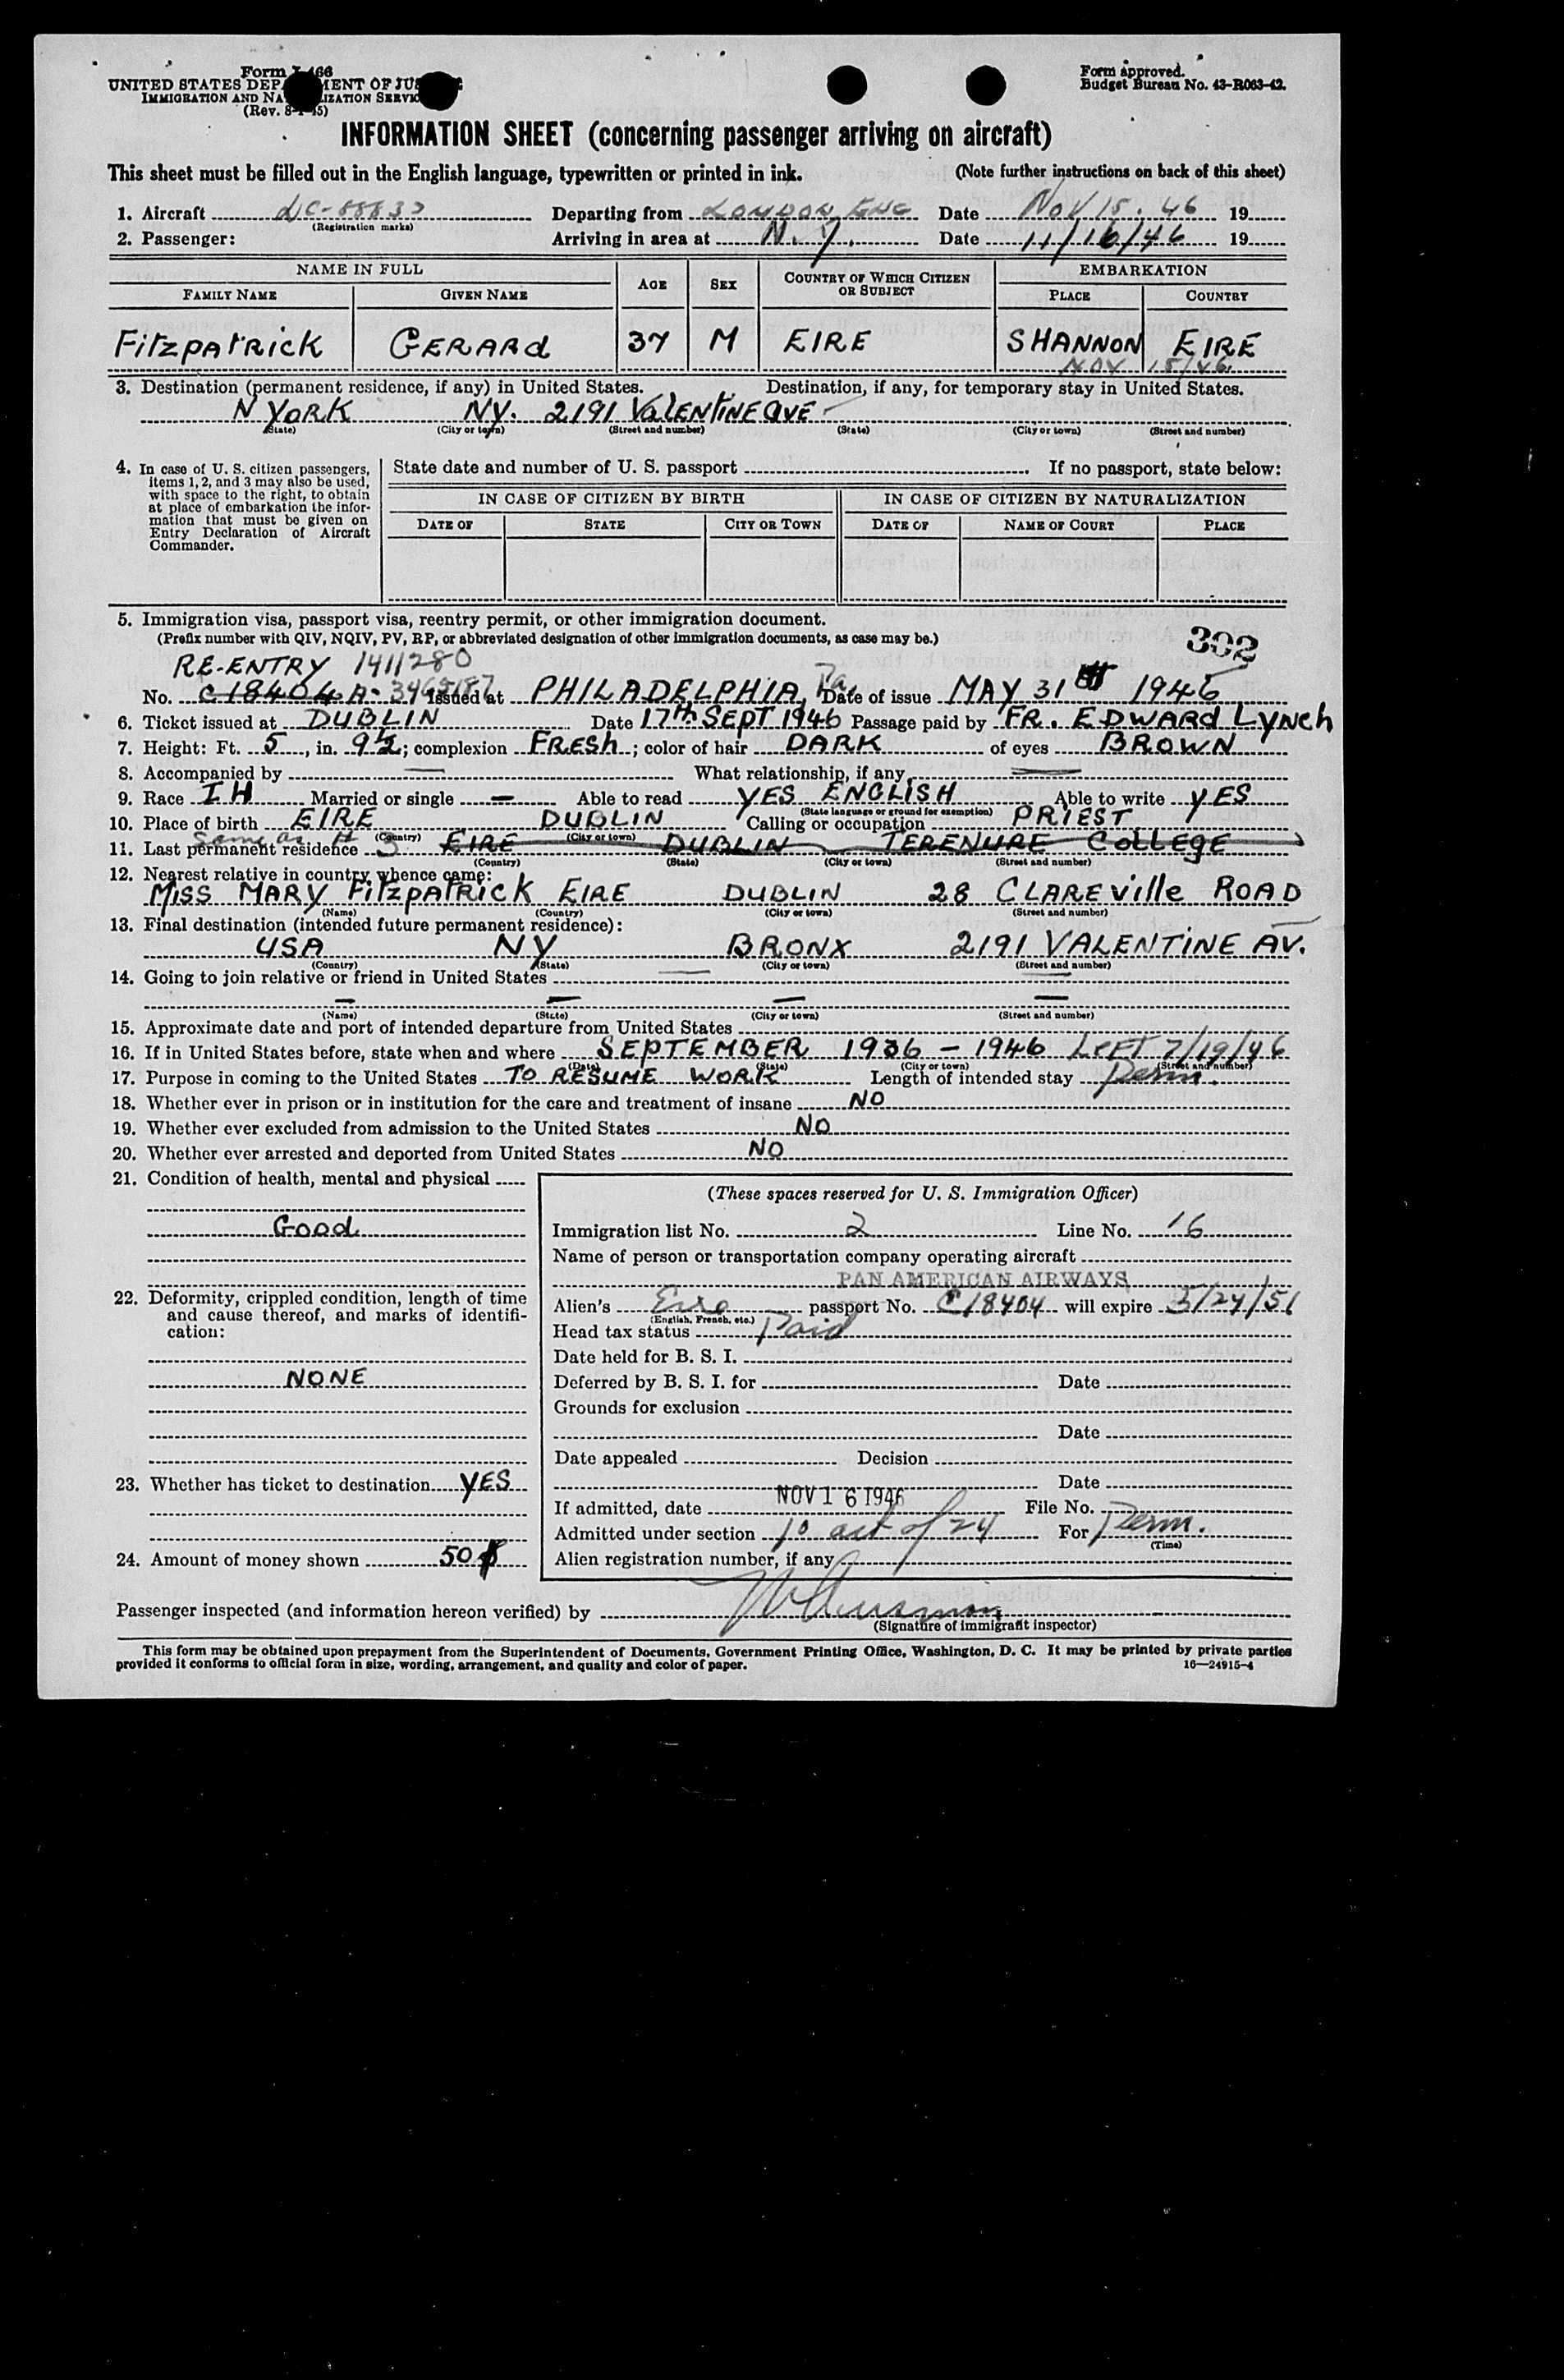 Form I-466
UNITED STATES DEPARTMENT OF JUSTICE
IMMIGRATION AND NATURALIZATION SERVICE
(Rev. 8-1-45)
Form approved.
Budget Bureau No. 43-R063-42.
INFORMATION SHEET (concerning passenger arriving on aircraft)
This sheet must be filled out in the English language, typewritten or printed in ink. (Note further instructions on back of this sheet)
1. Aircraft NC-88832 Departing from LONDON, ENG Date NOV 15. 46 19
(Registration marks)
2. Passenger: Arriving in area at N.Y. Date 11/16/46 19
NAME IN FULL AGE SEX COUNTRY OF WHICH CITIZEN OR SUBJECT EMBARKATION
FAMILY NAME GIVEN NAME PLACE COUNTRY
FitzpatrICK GERARd 37 M EIRE SHANNON EIRE
NOV 15/46
3. Destination (permanent residence, if any) in United States. Destination, if any, for temporary stay in United States.
N YORK NY. 2191 VaLENTINE AVE
(State) (City or town) (Street and number) (State) (City or town) (Street and number)
4. In case of U. S. citizen passengers, items 1, 2, and 3 may also be used, with space to the right, to obtain at place of embarkation the information that must be given on Entry Declaration of Aircraft Commander.
State date and number of U. S. passport If no passport, state below:
IN CASE OF CITIZEN BY BIRTH IN CASE OF CITIZEN BY NATURALIZATION
DATE OF STATE CITY OR TOWN DATE OF NAME OF COURT PLACE
5. Immigration visa, passport visa, reentry permit, or other immigration document.
(Prefix number with QIV, NQIV, PV, RP, or abbreviated designation of other immigration documents, as case may be.)
302
RE-ENTRY 1411280
No. C18404 A-3468187 Issued at PHILADELPHIA, Pa. Date of issue MAY 31 1946
6. Ticket issued at DUBLIN Date 17th SEPT 1946 Passage paid by FR. EDWARd LyNch
7. Height: Ft. 5, in. 9½; complexion FRESh; color of hair DARK of eyes BROWN
8. Accompanied by — What relationship, if any —
9. Race IH Married or single — Able to read YES ENGLISH Able to write yES
(State language or ground for exemption)
10. Place of birth EIRE DUBLIN Calling or occupation PRIEST
(Country) (City or town)
same as # 3
11. Last permanent residence EIRE DUBLIN TERENURE COLLEGE
(Country) (State) (City or town) (Street and number)
12. Nearest relative in country whence came:
MISS MARY FitzpatrICK EIRE DUBLIN 28 CLAREville ROAD
(Name) (Country) (City or town) (Street and number)
13. Final destination (intended future permanent residence):
USA NY BRONX 2191 VALENTINE AV.
(Country) (State) (City or town) (Street and number)
14. Going to join relative or friend in United States —
— — — —
(Name) (State) (City or town) (Street and number)
15. Approximate date and port of intended departure from United States
16. If in United States before, state when and where SEPTEMBER 1936 - 1946 LEFT 7/19/46
(Date) (State) (City or town) (Street and number)
17. Purpose in coming to the United States TO RESUME WORK Length of intended stay Perm.
18. Whether ever in prison or in institution for the care and treatment of insane NO
19. Whether ever excluded from admission to the United States NO
20. Whether ever arrested and deported from United States NO
21. Condition of health, mental and physical
Good
22. Deformity, crippled condition, length of time and cause thereof, and marks of identification:
NONE
23. Whether has ticket to destination yES
24. Amount of money shown 50 $
(These spaces reserved for U. S. Immigration Officer)
Immigration list No. 2 Line No. 16
Name of person or transportation company operating aircraft
PAN AMERICAN AIRWAYS
Alien's Eire passport No. C18404 will expire 5/24/51
(English, French, etc.)
Head tax status Paid
Date held for B. S. I.
Deferred by B. S. I. for Date
Grounds for exclusion
Date
Date appealed Decision
Date
If admitted, date NOV 16 1946 File No.
Admitted under section act of 24 For Perm.
(Time)
Alien registration number, if any
Passenger inspected (and information hereon verified) by
(Signature of immigrant inspector)
This form may be obtained upon prepayment from the Superintendent of Documents, Government Printing Office, Washington, D. C. It may be printed by private parties
provided it conforms to official form in size, wording, arrangement, and quality and color of paper. 16—24915-4